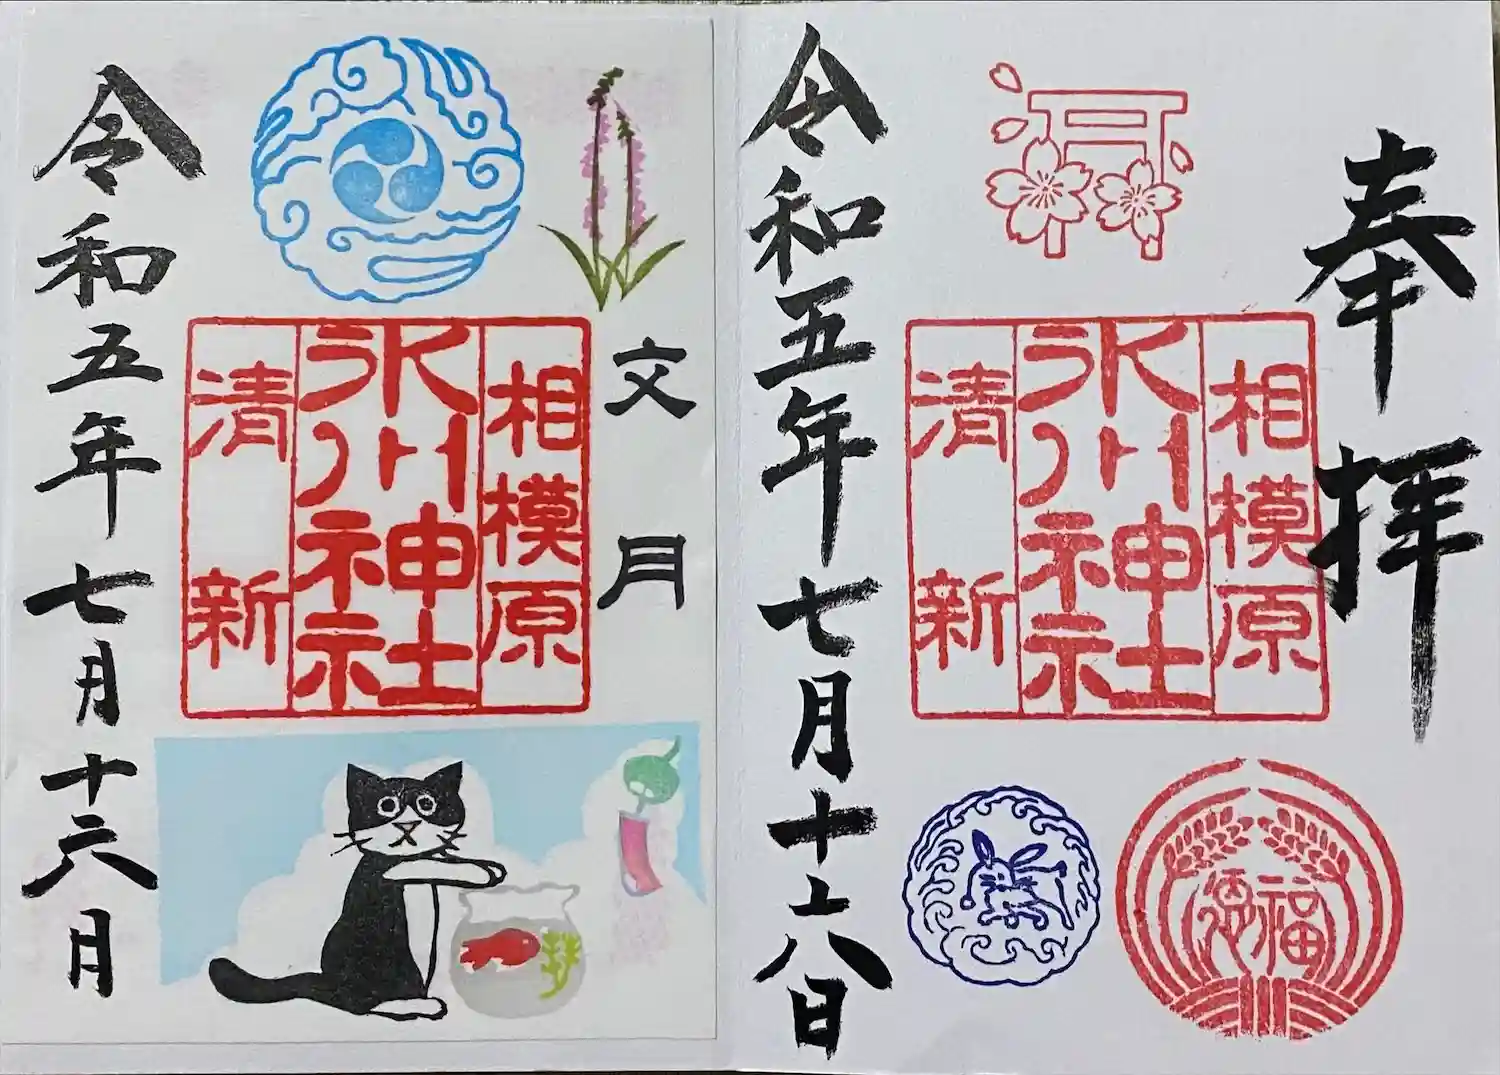 奉拝
相模原
氷川神社
清新
福
令和五年七月十六日
文月
相模原
氷川神社
清新
令和五年七月十六月